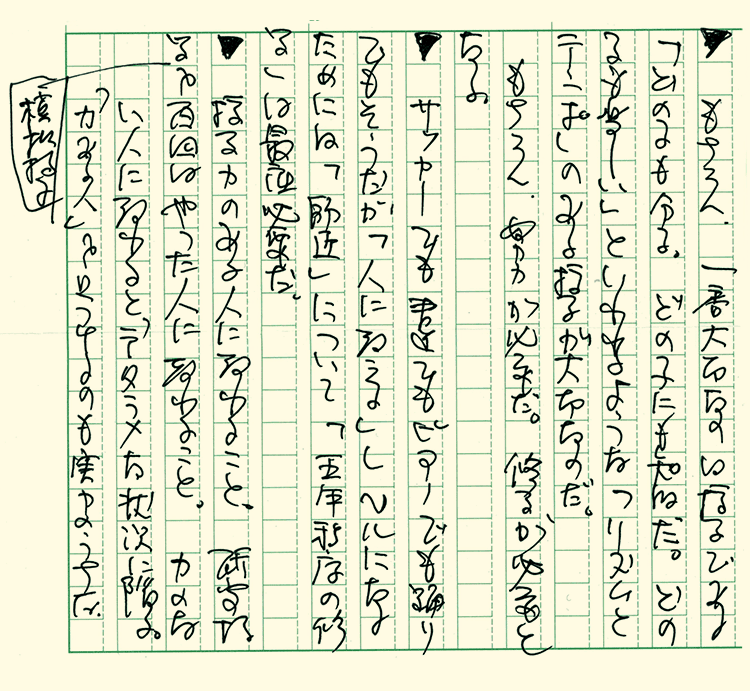 ▼もちろん、一番大切なのは授業である
「どの子も分る。どの子にも知的だ。どの
子も楽しい」といわれるような「リズムと
テンポ」のある授業が大切なのだ。
もちろん、努力が必要だ。修業が必要と
なる。
▼サッカーでも書道でもピアノでも踊り
でもそうだが「人に教える」レベルになる
ためには「師匠」について「五年程度の修
業」は最低必要だ。
▼授業力のある人に習うること。研究授
業を百回はやった人に習うること。力のな
い人に習うると、デタラメな状況に陥る。
「力ある人」を見つけるのも実力のうちだ。
模擬授業